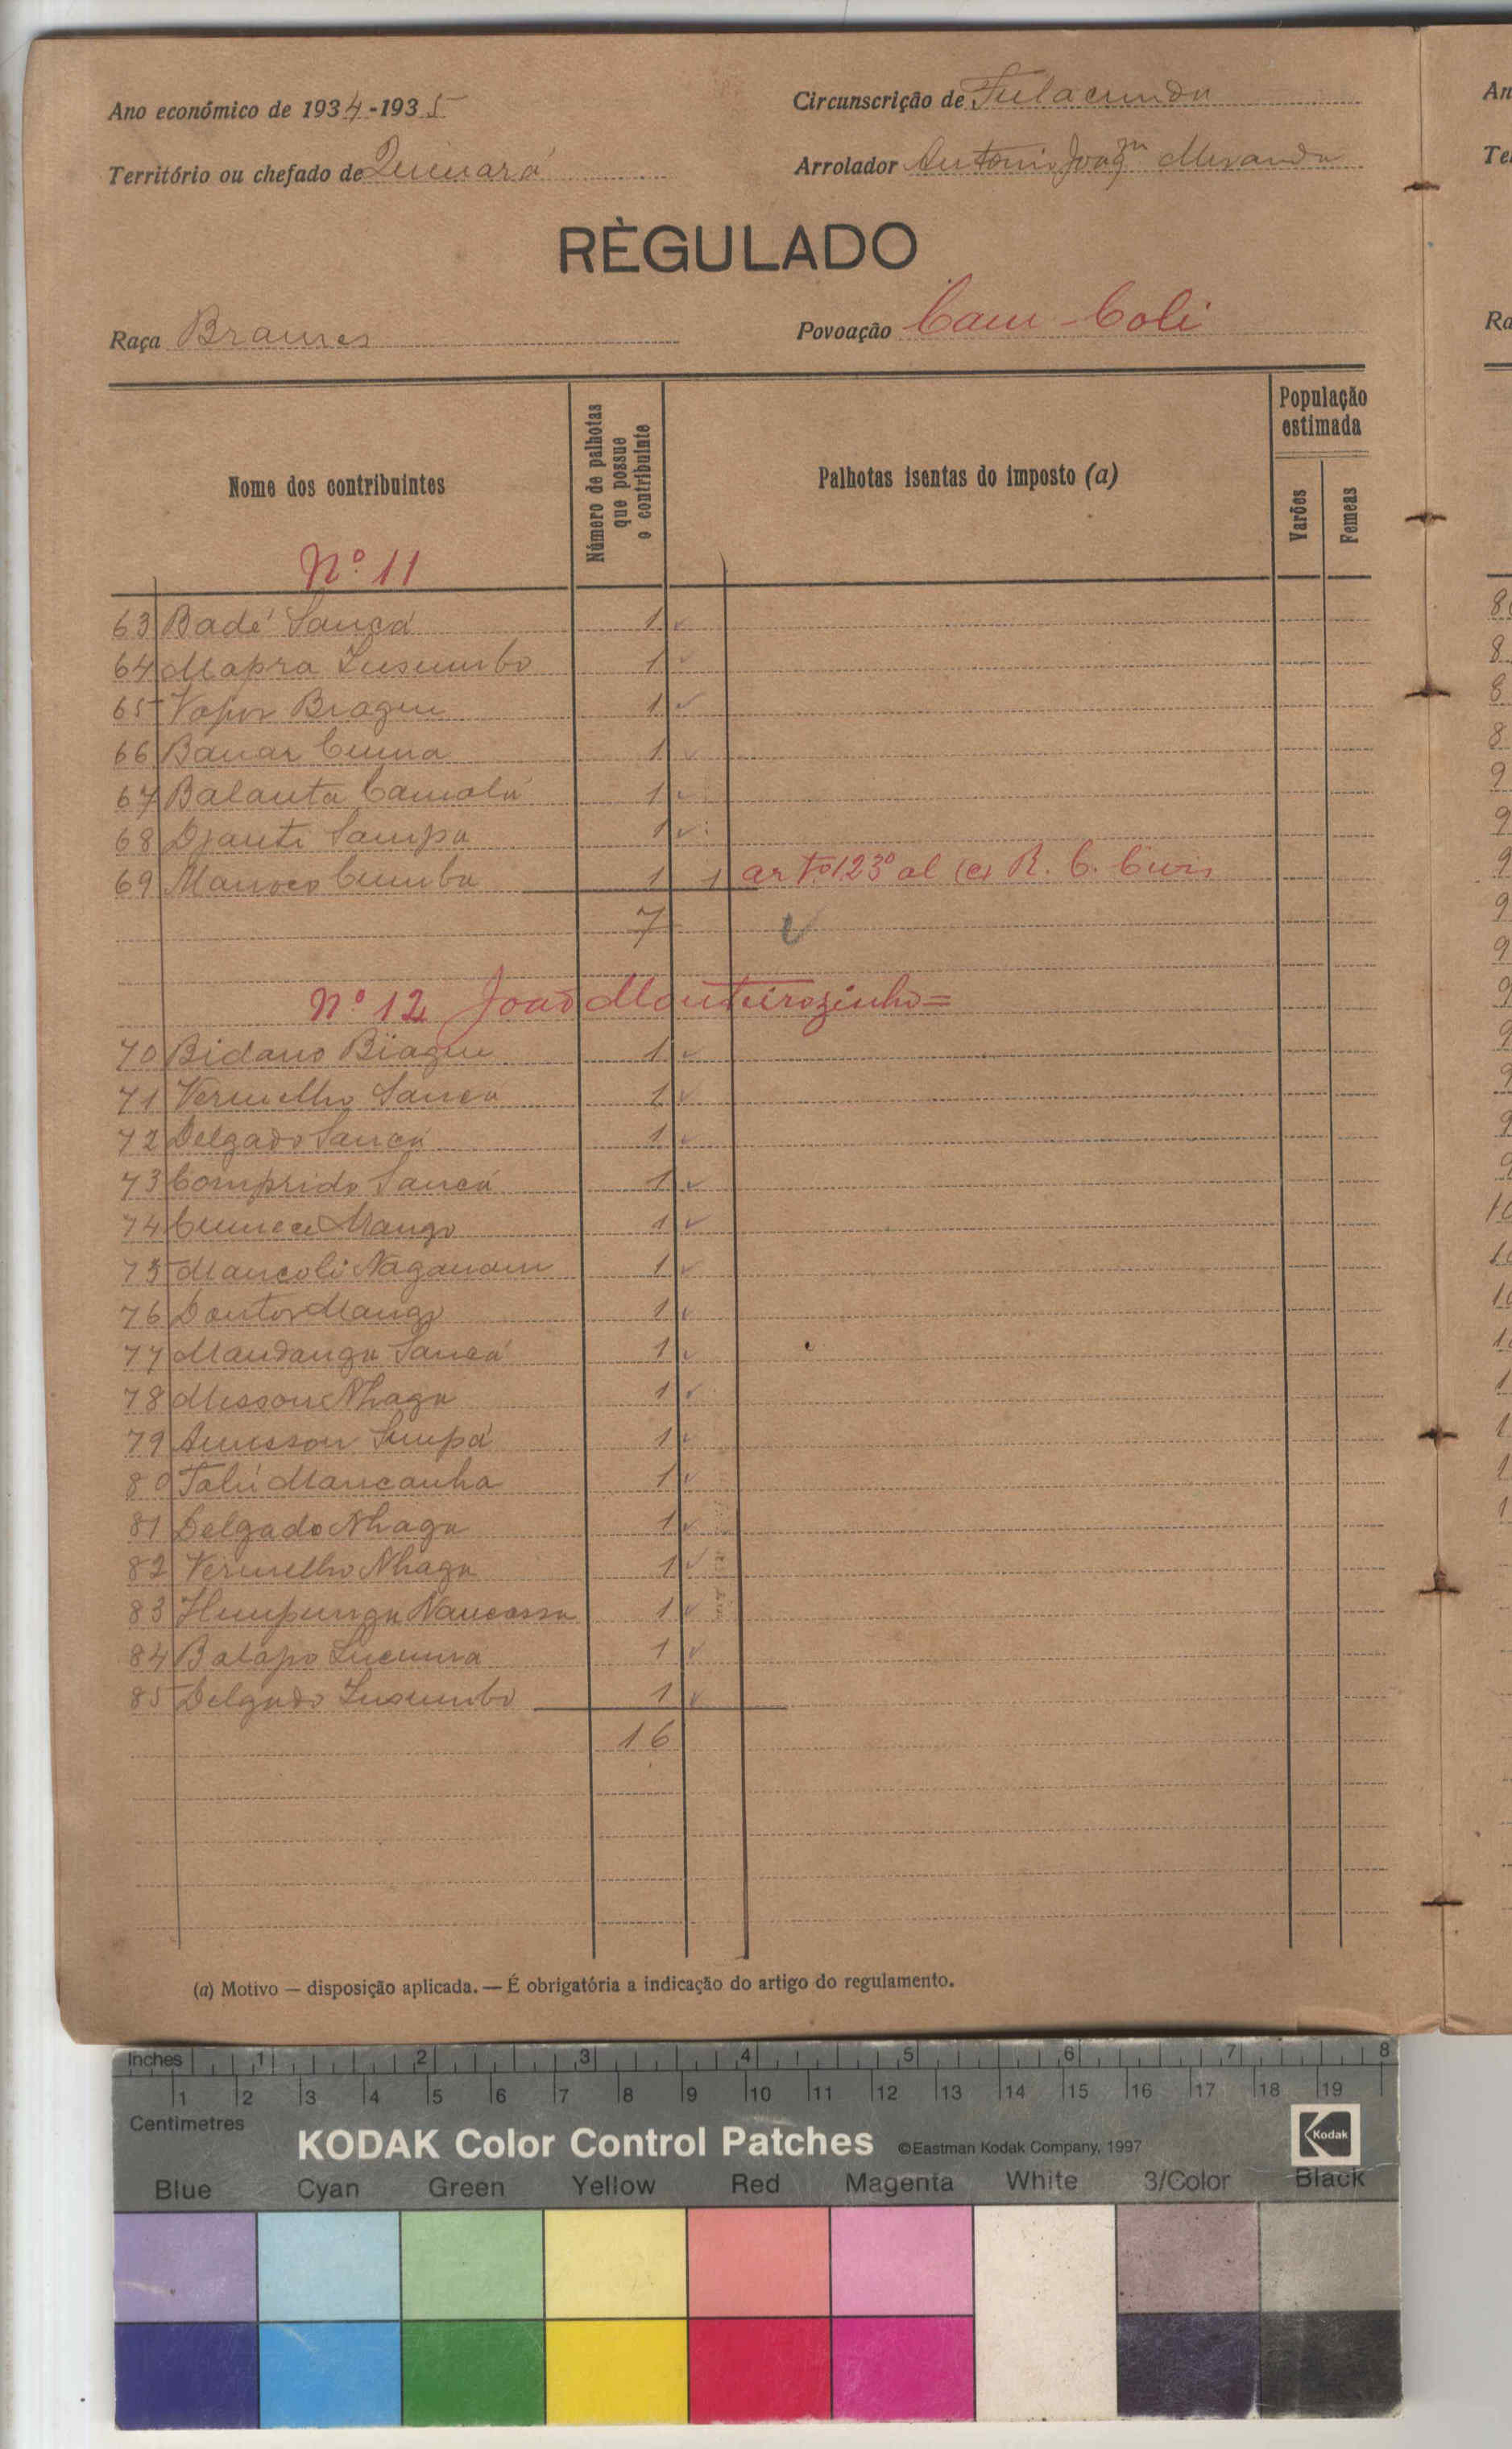 Ano económico de 1934-1935
Circunscrição de Fulacunda
Território ou chefado de Quinará
Arrolador Antonio Joaqm Miranda
RÈGULADO
Raça Brames
Povoação Cam-Coli
Nome dos contribuintes
Número de palhotas que possue o contribuinte
Palhotas isentas do imposto (a)
População estimada
Varões
Femeas
Nº 11
63 Badé Sancá 1
64 Mapra Lusumbo 1
65 Vapor Biague 1
66 Banar 1
67 Balanta 1
68 Djanti Sampa 1
69 1 1 artº 123º al (c) R. C. Civis
7
Nº 12 João Monteirozinho =
70 Bidano Biague 1
71 Vermelho Sanca 1
72 Delgado Sancá 1
73 Comprido Sancá 1
74 Mango 1
75 Mancoli 1
76 Doutor Mango 1
77 Mandanga Sancá 1
78 Nhaga 1
79 1
80 Talú Mancanha 1
81 Delgado Nhaga 1
82 Vermelho Nhaga 1
83 Nancassa 1
84 Batapo 1
85 Delgado Lusumbo 1
16
(a) Motivo — disposição aplicada. — É obrigatória a indicação do artigo do regulamento.
Inches 1 2 3 4 5 6 7 8
1 2 3 4 5 6 7 8 9 10 11 12 13 14 15 16 17 18 19
Centimetres
KODAK Color Control Patches ©Eastman Kodak Company, 1997 Kodak
Blue Cyan Green Yellow Red Magenta White 3/Color Black